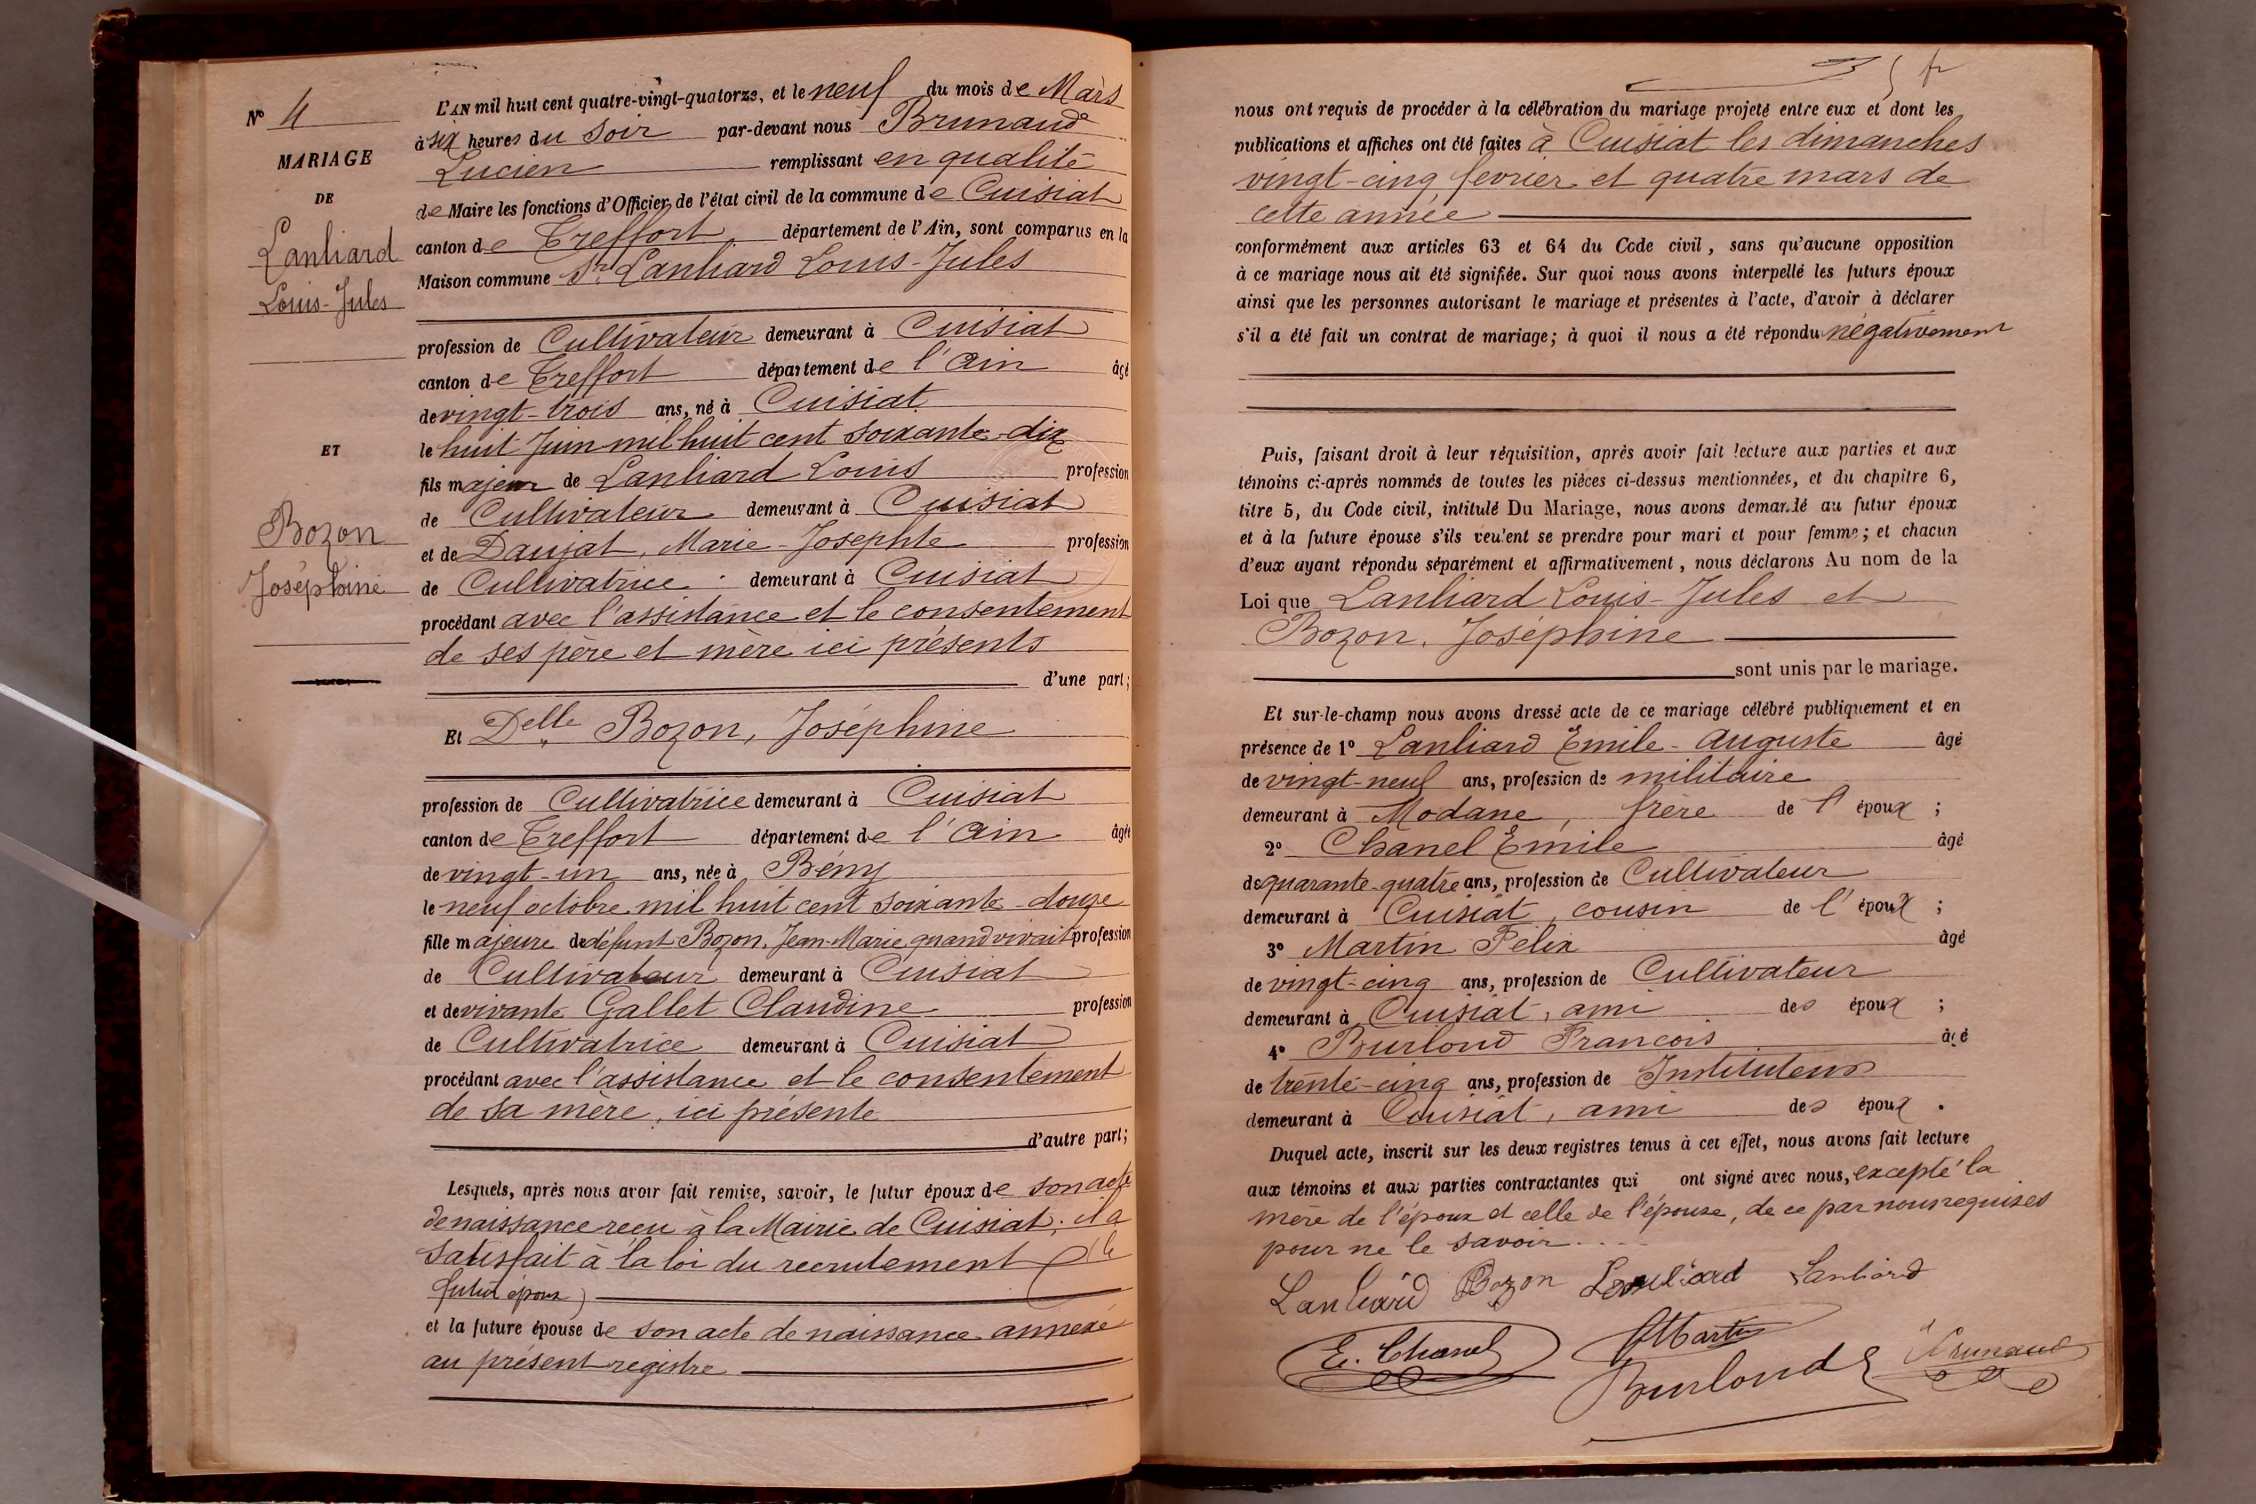 N° 4
MARIAGE
DE
Lanliard
Louis-Jules
ET
Bozon
Joséphine
L'AN mil huit cent quatre-vingt-quatorze, et le neuf du mois de Mars
à six heures du soir par-devant nous Brunaud
Lucien remplissant en qualité
de Maire les fonctions d'Officier de l'état civil de la commune de Cuisiat
canton de Treffort département de l'Ain, sont comparus en la
Maison commune Sr Lanliard Louis-Jules
profession de Cultivateur demeurant à Cuisiat
canton de Treffort département de l'Ain âgé
de vingt-trois ans, né à Cuisiat
le huit Juin mil huit cent soixante-dix
fils majeur de Lanliard Louis profession
de Cultivateur demeurant à Cuisiat
et de Daujat, Marie-Josephte profession
de Cultivatrice demeurant à Cuisiat
procédant avec l'assistance et le consentement
de ses père et mère ici présents
d'une part;
Et Delle Bozon, Joséphine
profession de Cultivatrice demeurant à Cuisiat
canton de Treffort département de l'Ain âgée
de vingt-un ans, née à Bény
le neuf octobre mil huit cent soixante-douze
fille majeure de défunt Bozon, Jean-Marie quand vivait profession
de Cultivateur demeurant à Cuisiat
et de vivante Gallet Claudine profession
de Cultivatrice demeurant à Cuisiat
procédant avec l'assistance et le consentement
de sa mère, ici présente
d'autre part;
Lesquels, après nous avoir fait remise, savoir, le futur époux de son acte
de naissance reçu à la Mairie de Cuisiat; il a
satisfait à la loi du recrutement (le
futur époux)
et la future épouse de son acte de naissance annexé
au présent registre
5 fr
nous ont requis de procéder à la célébration du mariage projeté entre eux et dont les
publications et affiches ont été faites à Cuisiat les dimanches
vingt-cinq février et quatre mars de
cette année
conformément aux articles 63 et 64 du Code civil, sans qu'aucune opposition
à ce mariage nous ait été signifiée. Sur quoi nous avons interpellé les futurs époux
ainsi que les personnes autorisant le mariage et présentes à l'acte, d'avoir à déclarer
s'il a été fait un contrat de mariage; à quoi il nous a été répondu négativement
Puis, faisant droit à leur réquisition, après avoir fait lecture aux parties et aux
témoins ci-après nommés de toutes les pièces ci-dessus mentionnées, et du chapitre 6,
titre 5, du Code civil, intitulé Du Mariage, nous avons demandé au futur époux
et à la future épouse s'ils veulent se prendre pour mari et pour femme; et chacun
d'eux ayant répondu séparément et affirmativement, nous déclarons Au nom de la
Loi que Lanliard Louis-Jules et
Bozon, Joséphine
sont unis par le mariage.
Et sur-le-champ nous avons dressé acte de ce mariage célébré publiquement et en
présence de 1° Lanliard Emile-Auguste âgé
de vingt-neuf ans, profession de militaire
demeurant à Modane, frère de l'époux;
2° Chanel Emile âgé
de quarante-quatre ans, profession de Cultivateur
demeurant à Cuisiat, cousin de l'époux;
3° Martin Felix âgé
de vingt-cinq ans, profession de Cultivateur
demeurant à Cuisiat, ami des époux;
4° Burloud Francois âgé
de trente-cinq ans, profession de Instituteur
demeurant à Cuisiat, ami des époux.
Duquel acte, inscrit sur les deux registres tenus à cet effet, nous avons fait lecture
aux témoins et aux parties contractantes qui ont signé avec nous, excepté la
mère de l'époux et celle de l'épouse, de ce par nous requises
pour ne le savoir....
Lanliard Bozon Lanliard Lanliard
E. Chanel Martin
Burloud Brunaud